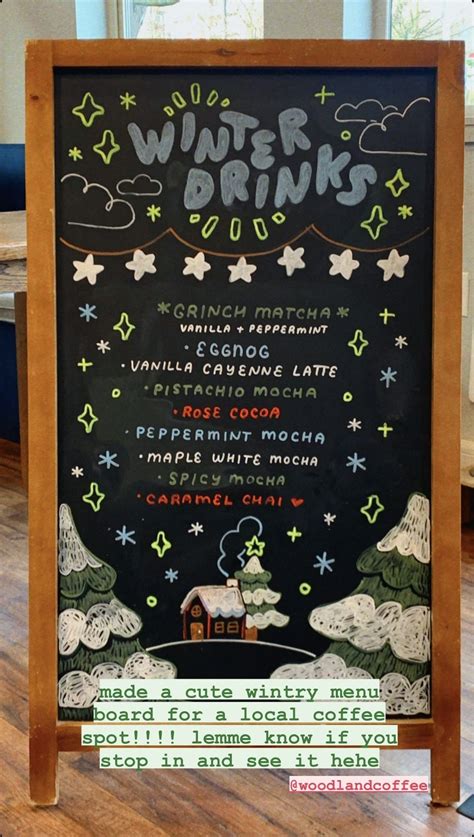 WINTER
DRINKS
*GRINCH MATCHA*
VANILLA + PEPPERMINT
• EGGNOG
• VANILLA CAYENNE LATTE
• PISTACHIO MOCHA
• ROSE COCOA
• PEPPERMINT MOCHA
• MAPLE WHITE MOCHA
• SPICY MOCHA
• CARAMEL CHAI ♥
made a cute wintry menu
board for a local coffee
spot!!!! lemme know if you
stop in and see it hehe
@woodlandcoffee